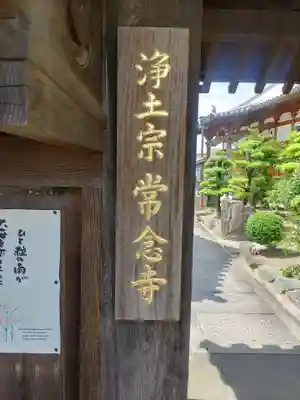 浄土宗 常念寺
ひと粒の雨が